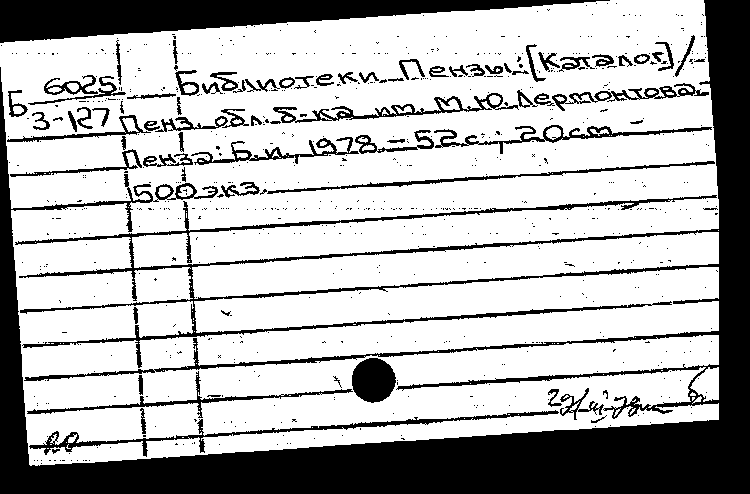 Б 6025 Библиотеки Пензы: [Каталог] /
3-127 Пенз. обл. б-ка им. М.Ю. Лермонтова.-
Пенза: Б.и., 1978. - 52 с.; 20 см -
500 экз.